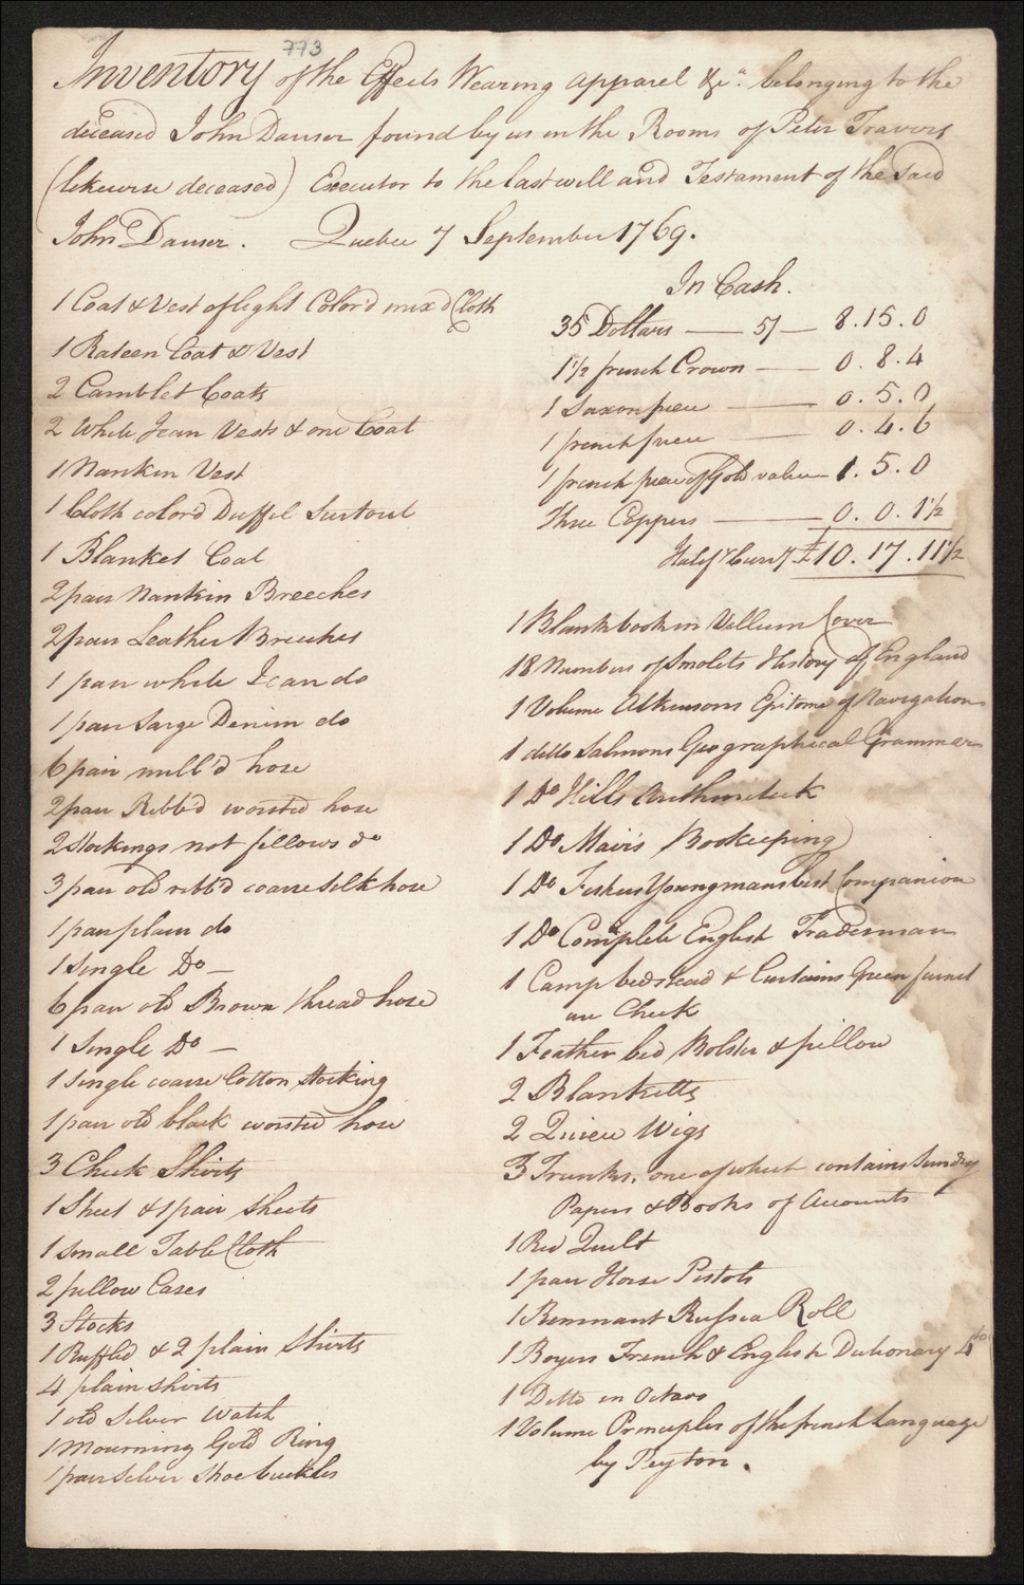 773
Inventory of the Effects Wearing apparel &ca. belonging to the
deceased John Danser found by us in the Rooms of Peter Travers
(likewise deceased) Executor to the last will and Testament of the said
John Danser. Quebec 7 September 1769.
1 Coat & Vest of light Color'd mix'd Cloth
1 Rateen Coat & Vest
2 Camblet Coats
2 White Jean Vests & one Coat
1 Nankin Vest
1 Cloth color'd Duffil Surtout
1 Blanket Coat
2 pair Nankin Breeches
2 pair Leather Breeches
1 pair white Jean do
1 pair Sarge Denim do
6 pair mill'd hose
2 pair Ribb'd worsted hose
2 Stockings not fellows do
3 pair old ribb'd coarse silk hose
1 pair plain do
1 Single Do —
6 pair old Brown thread hose
1 Single Do —
1 Single coarse Cotton Stocking
1 pair old black worsted hose
3 Check Shirts
1 Sheet & 1 pair Sheets
1 Small Table Cloth
2 pillow Cases
3 Stocks
1 Ruffled & 2 plain Shirts
4 plain shirts
1 old Silver Watch
1 Mourning Gold Ring
1 pair Silver Shoe buckles
In Cash.
35 Dollars — 5/ — 8.15.0
1½ french Crown — 0.8.4
1 Saxon piece — 0.5.0
1 french piece — 0.4.6
1 french piece of Gold value — 1.5.0
Three Coppers — 0.0.1½
Halifx Curry £10.17.11½
1 Blank book in Vellum Cover
18 Numbers of Smolets History of England
1 Volume Atkinsons Epitome of Navigation
1 ditto Salmons Geographical Grammar
1 Do Hills Arithmetick
1 Do Mairs Bookeeping
1 Do Fishers Youngmans best Companion
1 Do Complete English Tradesman
1 Camp bedstead & Curtains Green furnit
ure Check
1 Feather bed Bolster & pillow
2 Blanketts
2 Quieu Wigs
3 Trunks, one of which contains Sundry
Papers & Books of Accounts
1 Red Quilt
1 pair Horse Pistols
1 Remnant Russia Roll
1 Boyers French & English Dictionary 4to
1 Ditto in Octavo
1 Volume Principles of the french Language
by Peyton.